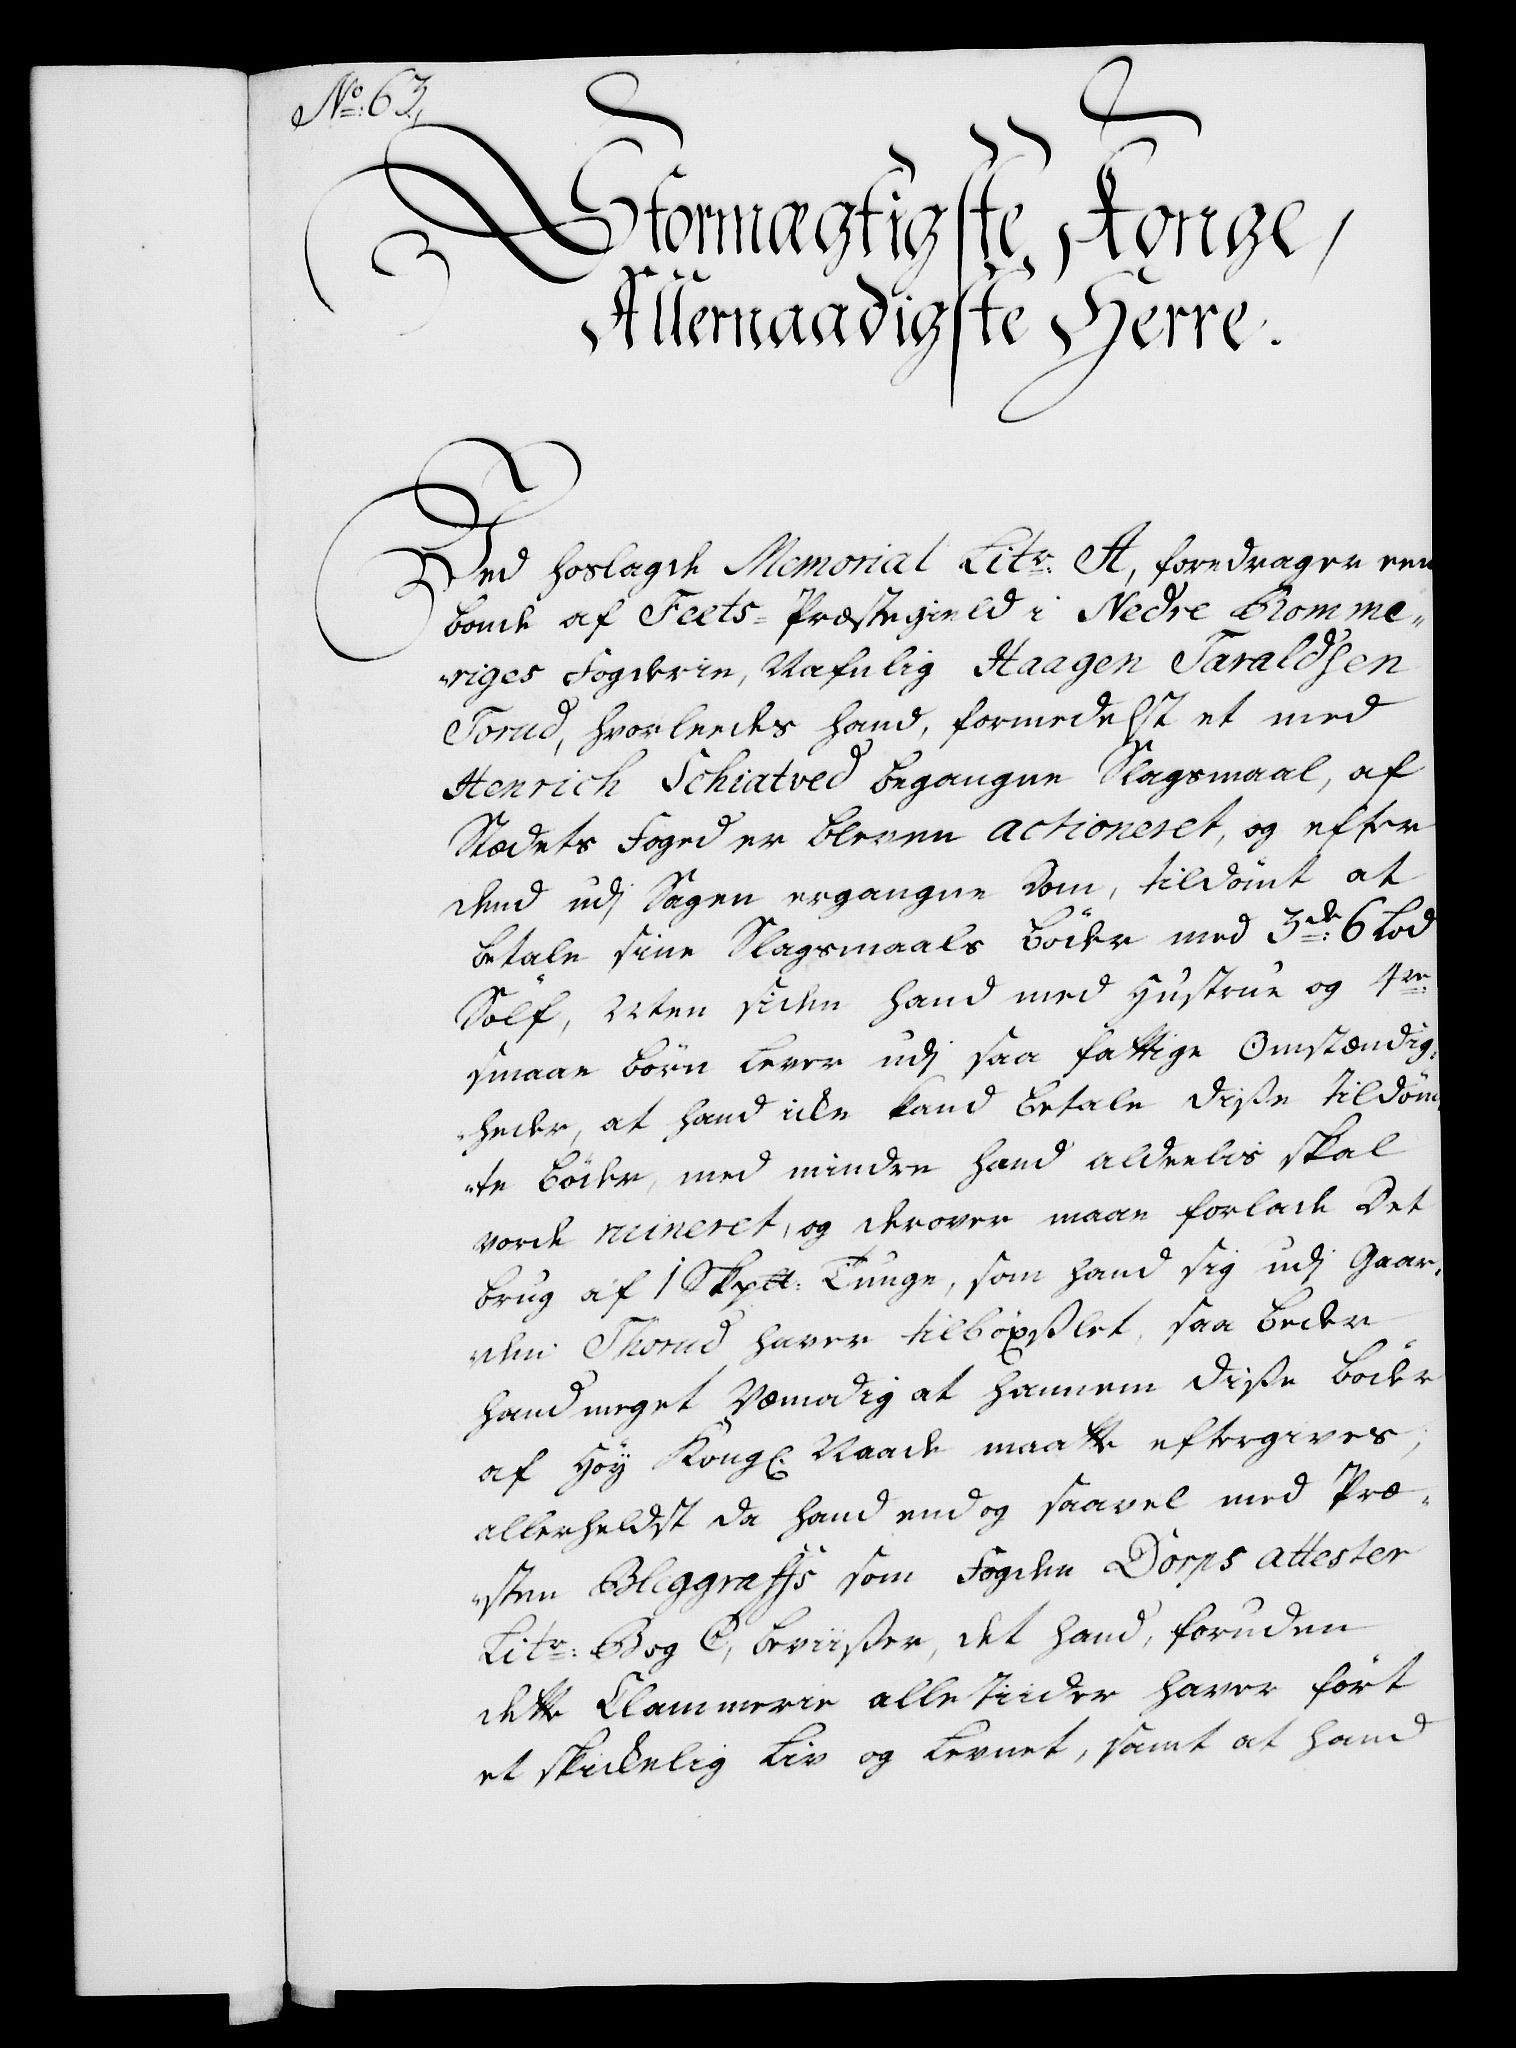 No: 63,
Stormægtigste Konge,
Allernaadigste Herre.
Ved hoslagde Memorial Litr: A, foredrager een
bonde af Feets-Præstegield i Nedre Romme„
„riges Fogderie, Nafnlig Haagen Taraldsen
Torud, hvorleedes hand, formedelst et med
Henrich Schiatved begangne Slagsmaal, af
Stædets Foged er bleven actioneret, og efter
dend udj Sagen ergangne Dom, tildömt at
betale sine Slagsmaals böder med 3de: 6 Lod
Sölf, Men siden hand med Hustrue og 4re:
smaae börn lever udj saa fattige Omstændig„
„heder, at hand icke kand betale disse tildöm„
„te böder, med mindre hand aldeelis skal
vorde ruineret, og derover maae forlade Det
brug af 1 Skptt: Tunge, som hand sig udj Gaar„
„den Thorud haver tilböxslet, saa beder
hand meget Vemodig at hannem disse böder
af Höy Kongl: Naade maatte eftergives,
allerheldst da hand endog saavel med Præ„
„sten Bleggraffs som Fogden Dorps attester
Litr: B og C, beviisser, det hand, foruden
dette Clammerie alle tiider haver fört
et skickelig Liv og Levnet, samt at hand